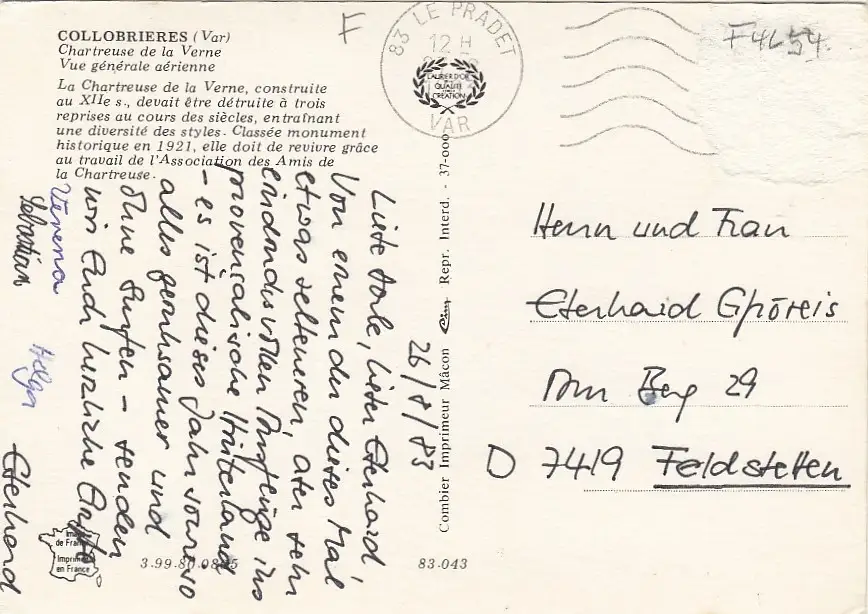 COLLOBRIERES (Var)
Chartreuse de la Verne
Vue générale aérienne
La Chartreuse de la Verne, construite
au XIIe s., devait être détruite à trois
reprises au cours des siècles, entraînant
une diversité des styles. Classée monument
historique en 1921, elle doit de revivre grâce
au travail de l'Association des Amis de
la Chartreuse.
F
83 LE PRADET
12 H
VAR
LAURIER D'OR
QUALITÉ
CRÉATION
F4654.
26/8/83
Liebe Dorle, lieber Eberhard,
Von einem der dieses Mal
etwas selteneren, aber sehr
eindrucksvollen Ausflüge ins
provenzalische Hinterland
- es ist dieses Jahr sowieso
alles geruhsamer und
ohne Surfen - senden
wir Euch herzliche Grüße
Verena
Sebastian
Helga
Eberhard
Combier Imprimeur Mâcon
Repr. Interd. - 37-000
Herrn und Frau
Eberhard
Am Berg 29
D 7419 Feldstetten
Imag
de France
Imprimé
en France
3.99.80.0885
83.043